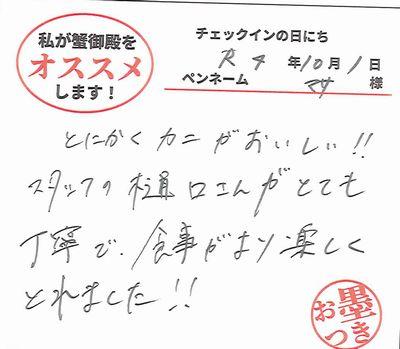 私が蟹御殿を
オススメ
します！
チェックインの日にち
R4年10月1日
ペンネーム マサ 様
とにかくカニがおいしい!!
スタッフの樋口さんがとても
丁寧で、食事がより楽しく
とれました!!
お墨つき